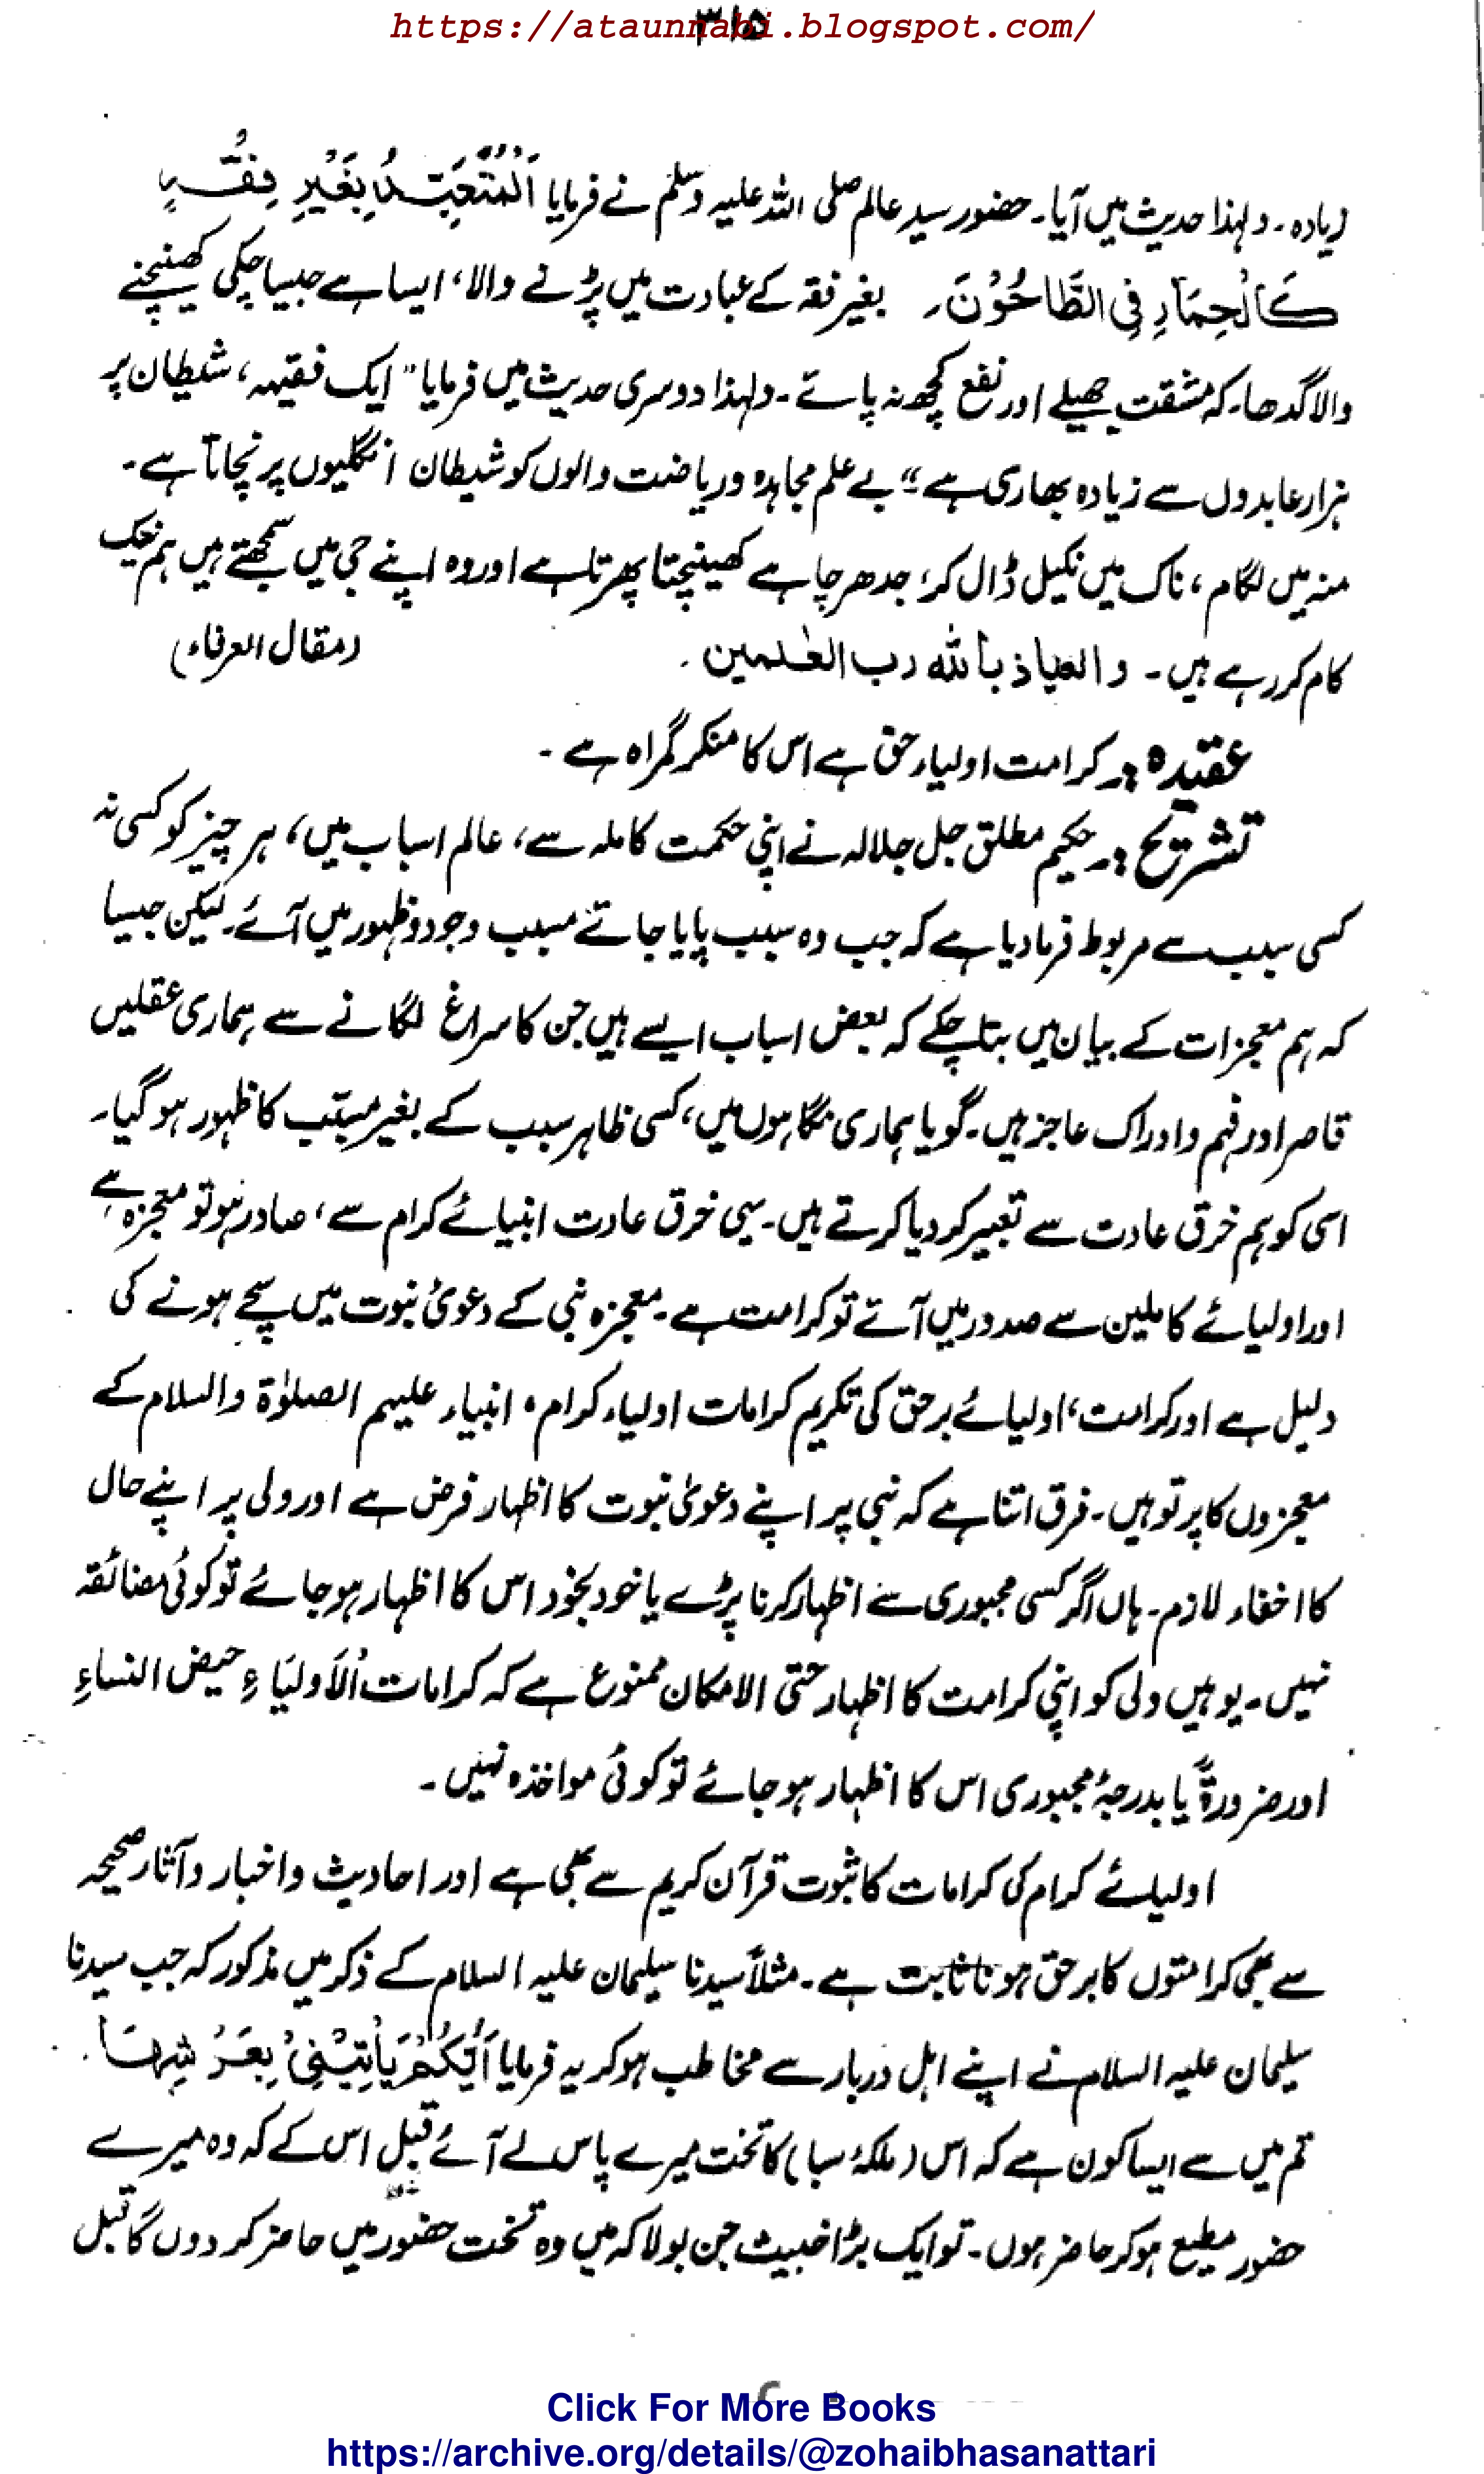 https://ataunnabi.blogspot.com/
۳۱۵
زیادہ۔ ولہذا حدیث میں آیا۔ حضور سید عالم صلی اللہ علیہ وسلم نے فرمایا اَلْمُتَعَبِّدُ بِغَيْرِ فِقْہٍ
كَالْحِمَارِ فِی الطَّاحُوْنَ۔ بغیر فقہ کے عبادت میں پڑنے والا، ایسا ہے جیسا چکی کھینچنے
والا گدھا۔ کہ مشقت جھیلے اور نفع کچھ نہ پائے۔ ولہذا دوسری حدیث میں فرمایا "ایک فقیہہ، شیطان پر
ہزار عابدوں سے زیادہ بھاری ہے" بے علم مجاہدہ و ریاضت والوں کو شیطان انگلیوں پر نچاتا ہے۔
منہ میں لگام، ناک میں نکیل ڈال کر، جدھر چاہے کھینچتا پھرتا ہے اور وہ اپنے جی میں سمجھتے ہیں ہم نیک
کام کر رہے ہیں۔ والعیاذ باللہ رب العٰلمین۔ (مقال العرفاء)
عقیدہ :۔ کرامت اولیاء حق ہے اس کا منکر گمراہ ہے۔
تشریح :۔ حکیم مطلق جل جلالہ نے اپنی حکمت کاملہ سے، عالم اسباب میں، ہر چیز کو کسی نہ
کسی سبب سے مربوط فرما دیا ہے کہ جب وہ سبب پایا جائے مسبب وجود و ظہور میں آئے۔ لیکن جیسا
کہ ہم معجزات کے بیان میں بتا چکے کہ بعض اسباب ایسے ہیں جن کا سراغ لگانے سے ہماری عقلیں
قاصر اور فہم و ادراک عاجز ہیں۔ گویا ہماری نگاہوں میں، کسی ظاہر سبب کے بغیر مسبّب کا ظہور ہو گیا۔
اسی کو ہم خرق عادت سے تعبیر کر دیا کرتے ہیں۔ یہی خرق عادت انبیائے کرام سے، صادر ہو تو معجزہ ہے
اور اولیائے کاملین سے صدور میں آئے تو کرامت ہے۔ معجزہ نبی کے دعویٰ نبوت میں سچے ہونے کی
دلیل ہے اور کرامت، اولیائے برحق کی تکریم کرامات اولیاء کرام، انبیاء علیہم الصلوٰۃ والسلام کے
معجزوں کا پرتو ہیں۔ فرق اتنا ہے کہ نبی پر اپنے دعویٰ نبوت کا اظہار فرض ہے اور ولی پر اپنے حال
کا اخفاء لازم۔ ہاں اگر کسی مجبوری سے اظہار کرنا پڑے یا خود بخود اس کا اظہار ہو جائے تو کوئی مضائقہ
نہیں۔ یوہیں ولی کو اپنی کرامت کا اظہار حتی الامکان ممنوع ہے کہ کرامات اُلاَولیَاءِ حیض النساءِ
اور ضرورۃً یا بدرجۂ مجبوری اس کا اظہار ہو جائے تو کوئی مواخذہ نہیں۔
اولیائے کرام کی کرامات کا ثبوت قرآن کریم سے بھی ہے اور احادیث و اخبار و آثار صحیحہ
سے بھی کرامتوں کا برحق ہونا ثابت ہے۔ مثلاً سیدنا سلیمان علیہ السلام کے ذکر میں مذکور کہ جب سیدنا
سلیمان علیہ السلام نے اپنے اہل دربار سے مخاطب ہو کر یہ فرمایا اَیُّکُمْ یَأتِیْنِیْ بِعَرْشِہَا۔
تم میں سے ایسا کون ہے کہ اس (ملکۂ سبا) کا تخت میرے پاس لے آئے قبل اس کے کہ وہ میرے
حضور مطیع ہو کر حاضر ہوں۔ تو ایک بڑا خبیث جن بولا کہ میں وہ تخت حضور میں حاضر کر دوں گا قبل
Click For More Books
https://archive.org/details/@zohaibhasanattari